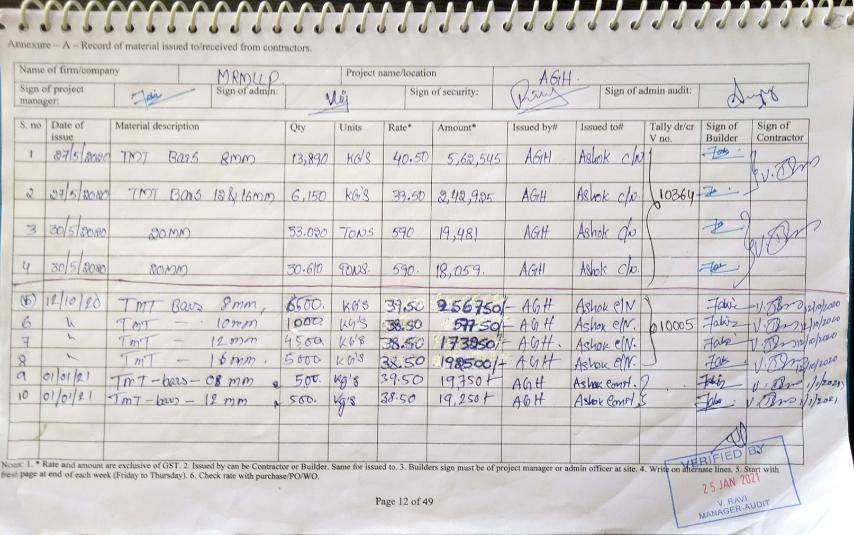 Annexure – A – Record of material issued to/received from contractors.
Name of firm/company MRMLLP. Project name/location AGH.
Sign of project manager: Sign of admin: Sign of security: Sign of admin audit:
S. no Date of issue Material description Qty Units Rate* Amount* Issued by# Issued to# Tally dr/cr V no. Sign of Builder Sign of Contractor
1 27/5/2020 TMT Bars 8mm 13,890 KG'S 40.50 5,62,545 AGH Ashok c/o
2 27/5/2020 TMT Bars 12 & 16mm 6,150 KG'S 39.50 2,42,925 AGH Ashok c/o. 10364
3 30/5/2020 20MM 33.020 TONS 590 19,481 AGH Ashok c/o
4 30/5/2020 20MM 30.610 TONS. 590. 18,059. AGH Ashok c/o
(5) 12/10/20 TMT Bars 8mm, 6500. KG'S 39.50 256750/- AGH Ashok c/N. 12/10/2020
6 " TMT – 10mm 1000 KG'S 38.50 AGH Ashok c/N. 10005 12/10/2020
7 " TMT – 12mm 4500 KG'S 38.50 173250/- AGH. Ashok c/N. 12/10/2020
8 " TMT – 16mm. 5000 KG'S 38.50 192500/- AGH Ashok c/N. 12/10/2020
9 01/01/21 TMT-bars-08mm 500. Kg's 39.50 19750/- AGH Ashok const. 1/1/2021
10 01/01/21 TMT-bars-12mm 500. Kg's 38.50 19,250/- AGH Ashok const. 1/1/2021
Notes: 1. * Rate and amount are exclusive of GST. 2. Issued by can be Contractor or Builder. Same for issued to. 3. Builders sign must be of project manager or admin officer at site. 4. Write on alternate lines. 5. Start with
fresh page at end of each week (Friday to Thursday). 6. Check rate with purchase/PO/WO.
Page 12 of 49
VERIFIED BY
25 JAN 2021
V. RAVI
MANAGER-AUDIT